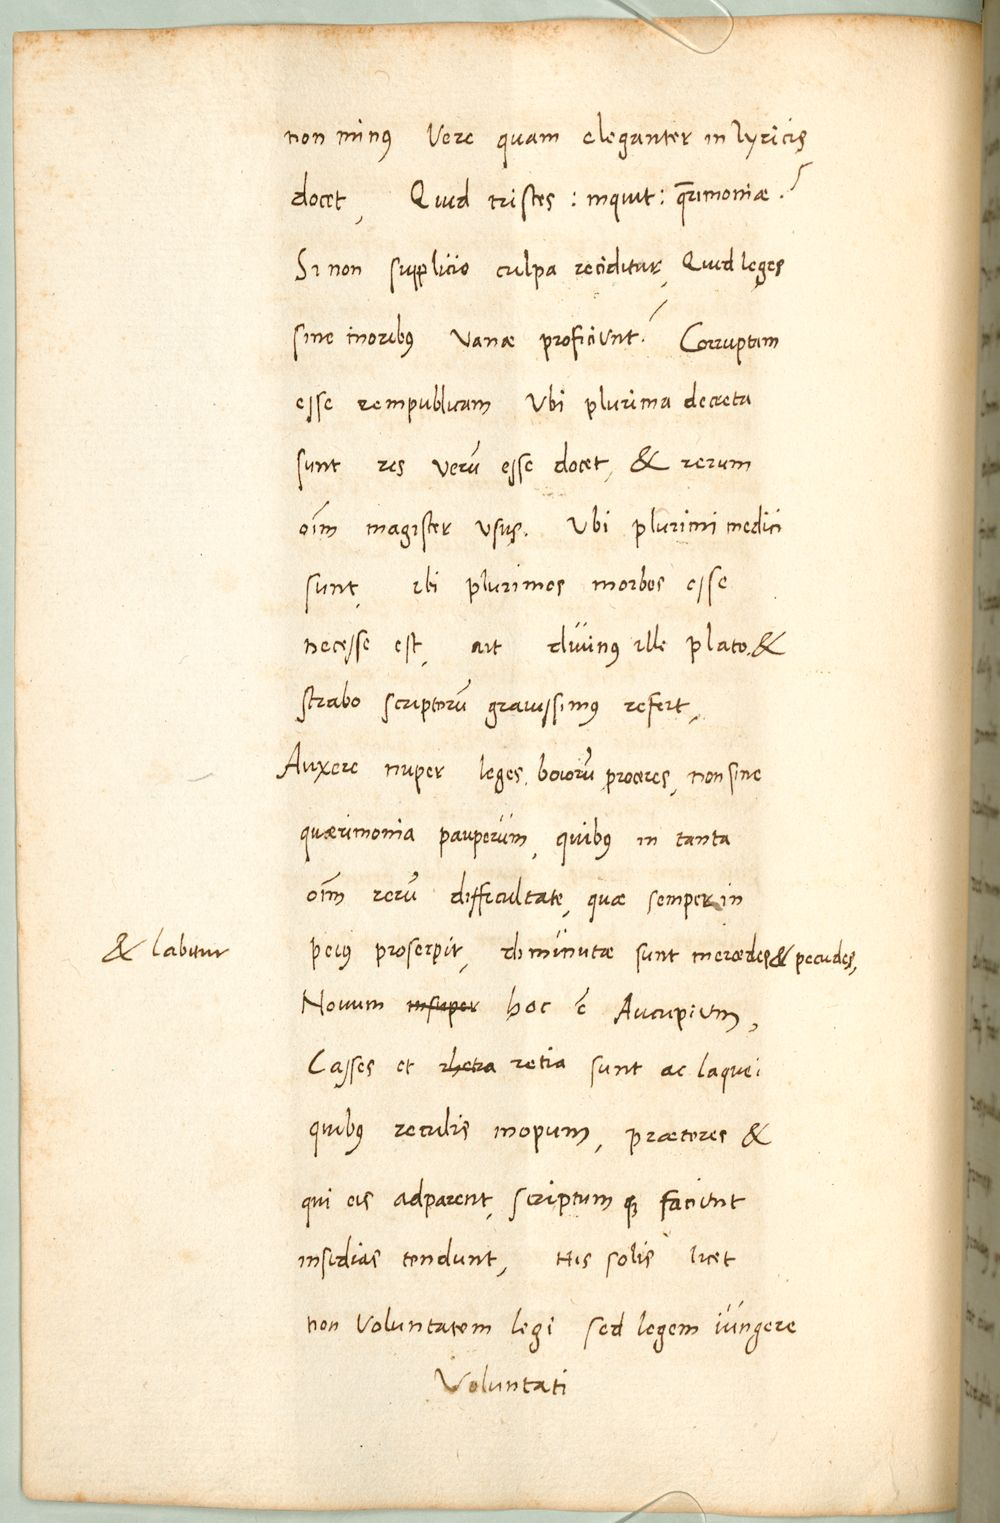 non minꝰ Vere quam eleganter in lyricis
docet, Quid tristes : inquit : q̄rimoniæ ?
Si non supplicio culpa reciditur, Quid leges
sine moribꝰ vanæ proficiunt? Corruptam
esse rempublicam Vbi plurima decreta
sunt res verū esse docet, & rerum
oīm magister vsus. Vbi plurimi medici
sunt, ibi plurimos morbos esse
necesse est, ait diuinꝰ ille plato. &
strabo scriptorū grauissimꝰ refert,
Auxere nuper leges boiorū proceres, non sine
quærimonia pauperum, quibꝰ in tanta
oīm rerū difficultate, quæ semper in
& labitur
peiꝰ proserpit, diminutæ sunt mercedes & pecudes,
Nouum insuper hoc ē Aucupium,
Casses et rhetra retia sunt ac laquei
quibꝰ reculis inopum, prætores &
qui eis adparent, scriptum qꝫ faciunt
insidias tendunt, His solis licet
non voluntatem legi sed legem iungere
Voluntati